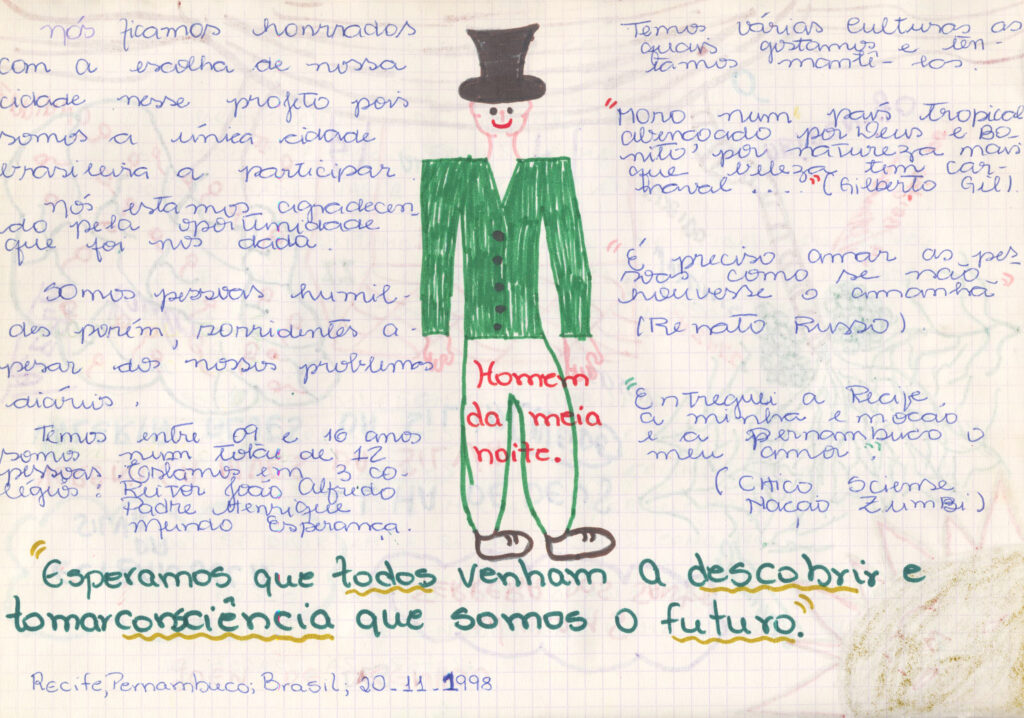 nós ficamos honrrados
com a escolha de nossa
cidade nesse projeto pois
somos a única cidade
brasileira a participar
nós estamos agradecen
do pela oportunidade
que foi nos dada.
somos pessoas humil-
des porém, sorridentes a-
pesar dos nossos problemas
diários.
Temos entre 09 e 16 anos
somos num total de 12
pessoas. Estamos em 3 co-
légios: Reitor João Alfredo
Padre Henrique
mundo Esperança.
Homem
da meia
noite.
Temos várias culturas as
quais gostamos e ten-
tamos mantê-los.
"Moro num país tropical
abençoado por Deus e Bo-
nito, por natureza mais
que beleza tem car-
naval ...." (Gilberto Gil)
"É preciso amar as pes-
soas como se não
houvesse o amanhã"
(Renato Russo).
"Entreguei a Recife
a minha emoção
e a pernambuco o
meu amor".
(Chico Sciense
Nacão Zumbi)
"Esperamos que todos venham a descobrir e
tomar consciência que somos o futuro."
Recife, Pernambuco; Brasil; 20-11-1998